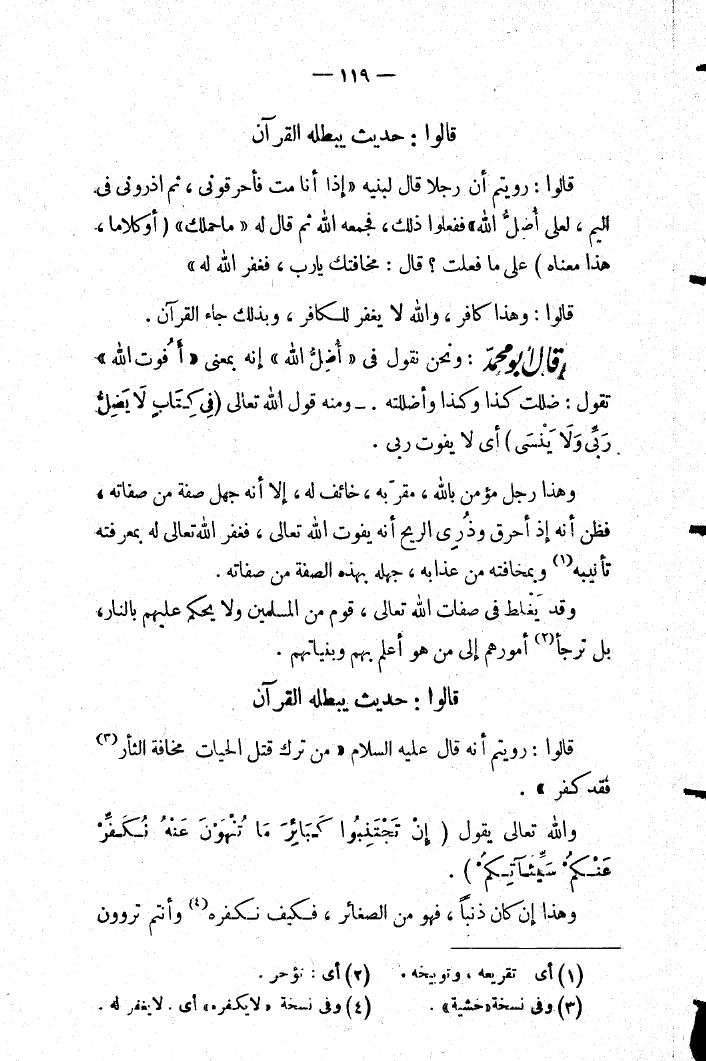 — ١١٩ —
قالوا : حديث يبطله القرآن
قالوا : رويتم أن رجلا قال لبنيه «إذا أنا مت فأحرقونى ، ثم اذرونى فى
اليم ، لعلى أُضلُّ الله» ففعلوا ذلك ، فجمعه الله ثم قال له « ماحملك» ( أو كلاما ،
هذا معناه ) على ما فعلت ؟ قال : مخافتك يارب ، فغفر الله له »
قالوا : وهذا كافر ، والله لا يغفر للكافر ، وبذلك جاء القرآن .
قال أبو محمد : ونحن نقول فى « أُضِلُّ الله » إنه بمعنى « أَفوت الله »
تقول : ضللت كذا وكذا وأضللته . – ومنه قول الله تعالى (فِى كِتَابٍ لَا يَضِلُّ
رَبِّى وَلَا يَنْسَى ) أى لا يفوت ربى .
وهذا رجل مؤمن بالله ، مقرّ به ، خائف له ، إلا أنه جهل صفة من صفاته ،
فظن أنه إذ أحرق وذُرِى الريح أنه يفوت الله تعالى ، فغفر الله تعالى له بمعرفته
تأنيبه(١) وبمخافته من عذابه ، جهله بهذه الصفة من صفاته .
وقد يَغْلط فى صفات الله تعالى ، قوم من المسلمين ولا يحكم عليهم بالنار،
بل ترجأ(٢) أمورهم إلى من هو أعلم بهم وبنياتهم .
قالوا : حديث يبطله القرآن
قالوا : رويتم أنه قال عليه السلام « من ترك قتل الحيات مخافة الثأر(٣)
فقد كفر » .
والله تعالى يقول ( إِنْ تَجْتَنِبُوا كَبَائِرَ مَا تُنْهَوْنَ عَنْهُ نُكَفِّرْ
عَنْكُمْ سَيِّئَاتِكُمْ ) .
وهذا إن كان ذنباً ، فهو من الصغائر ، فكيف نكفره(٤) وأنتم تروون
(١) أى تقريعه ، وتوبيخه . (٢) أى : نؤخر .
(٣) وفى نسخة «خشية» . (٤) وفى نسخة « لايكفره» أى . لايغفر له .